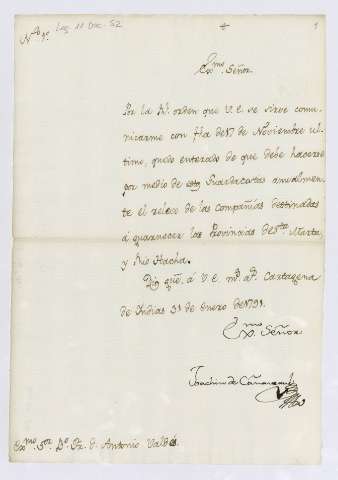 Leg. 11 Doc. 52
Exmo. Señor
Por la Rl. orden que V.E. se sirve comu-
nicarme con fha de 17 de Noviembre ul-
timo, quedo enterado de que debe hacerse
por medio de estos Guardacostas anualmen-
te el relevo de las Compañias destinadas
á guarnecer las Provincias de Sta. Marta
y Rio Hacha.
Dios gue. á V.E. ms. as. Cartagena
de Indias 31 de Enero de 1791.
Exmo. Señor
Joachin de Cañaveral
Exmo. Sor. Bo. Fr. D. Antonio Valdés